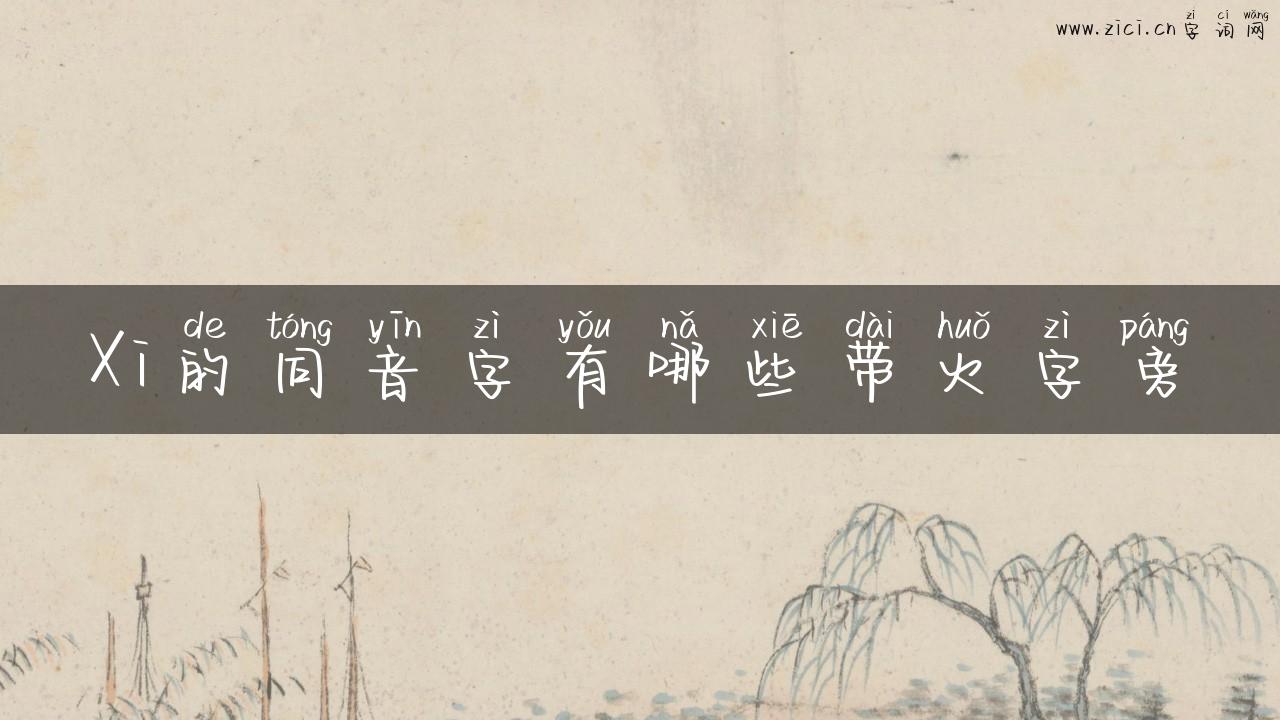 zì cí wǎng
www.zici.cn 字词网
de tóng yīn zì yǒu nǎ xiē dài huǒ zì páng
Xi的同音字有哪些带火字旁